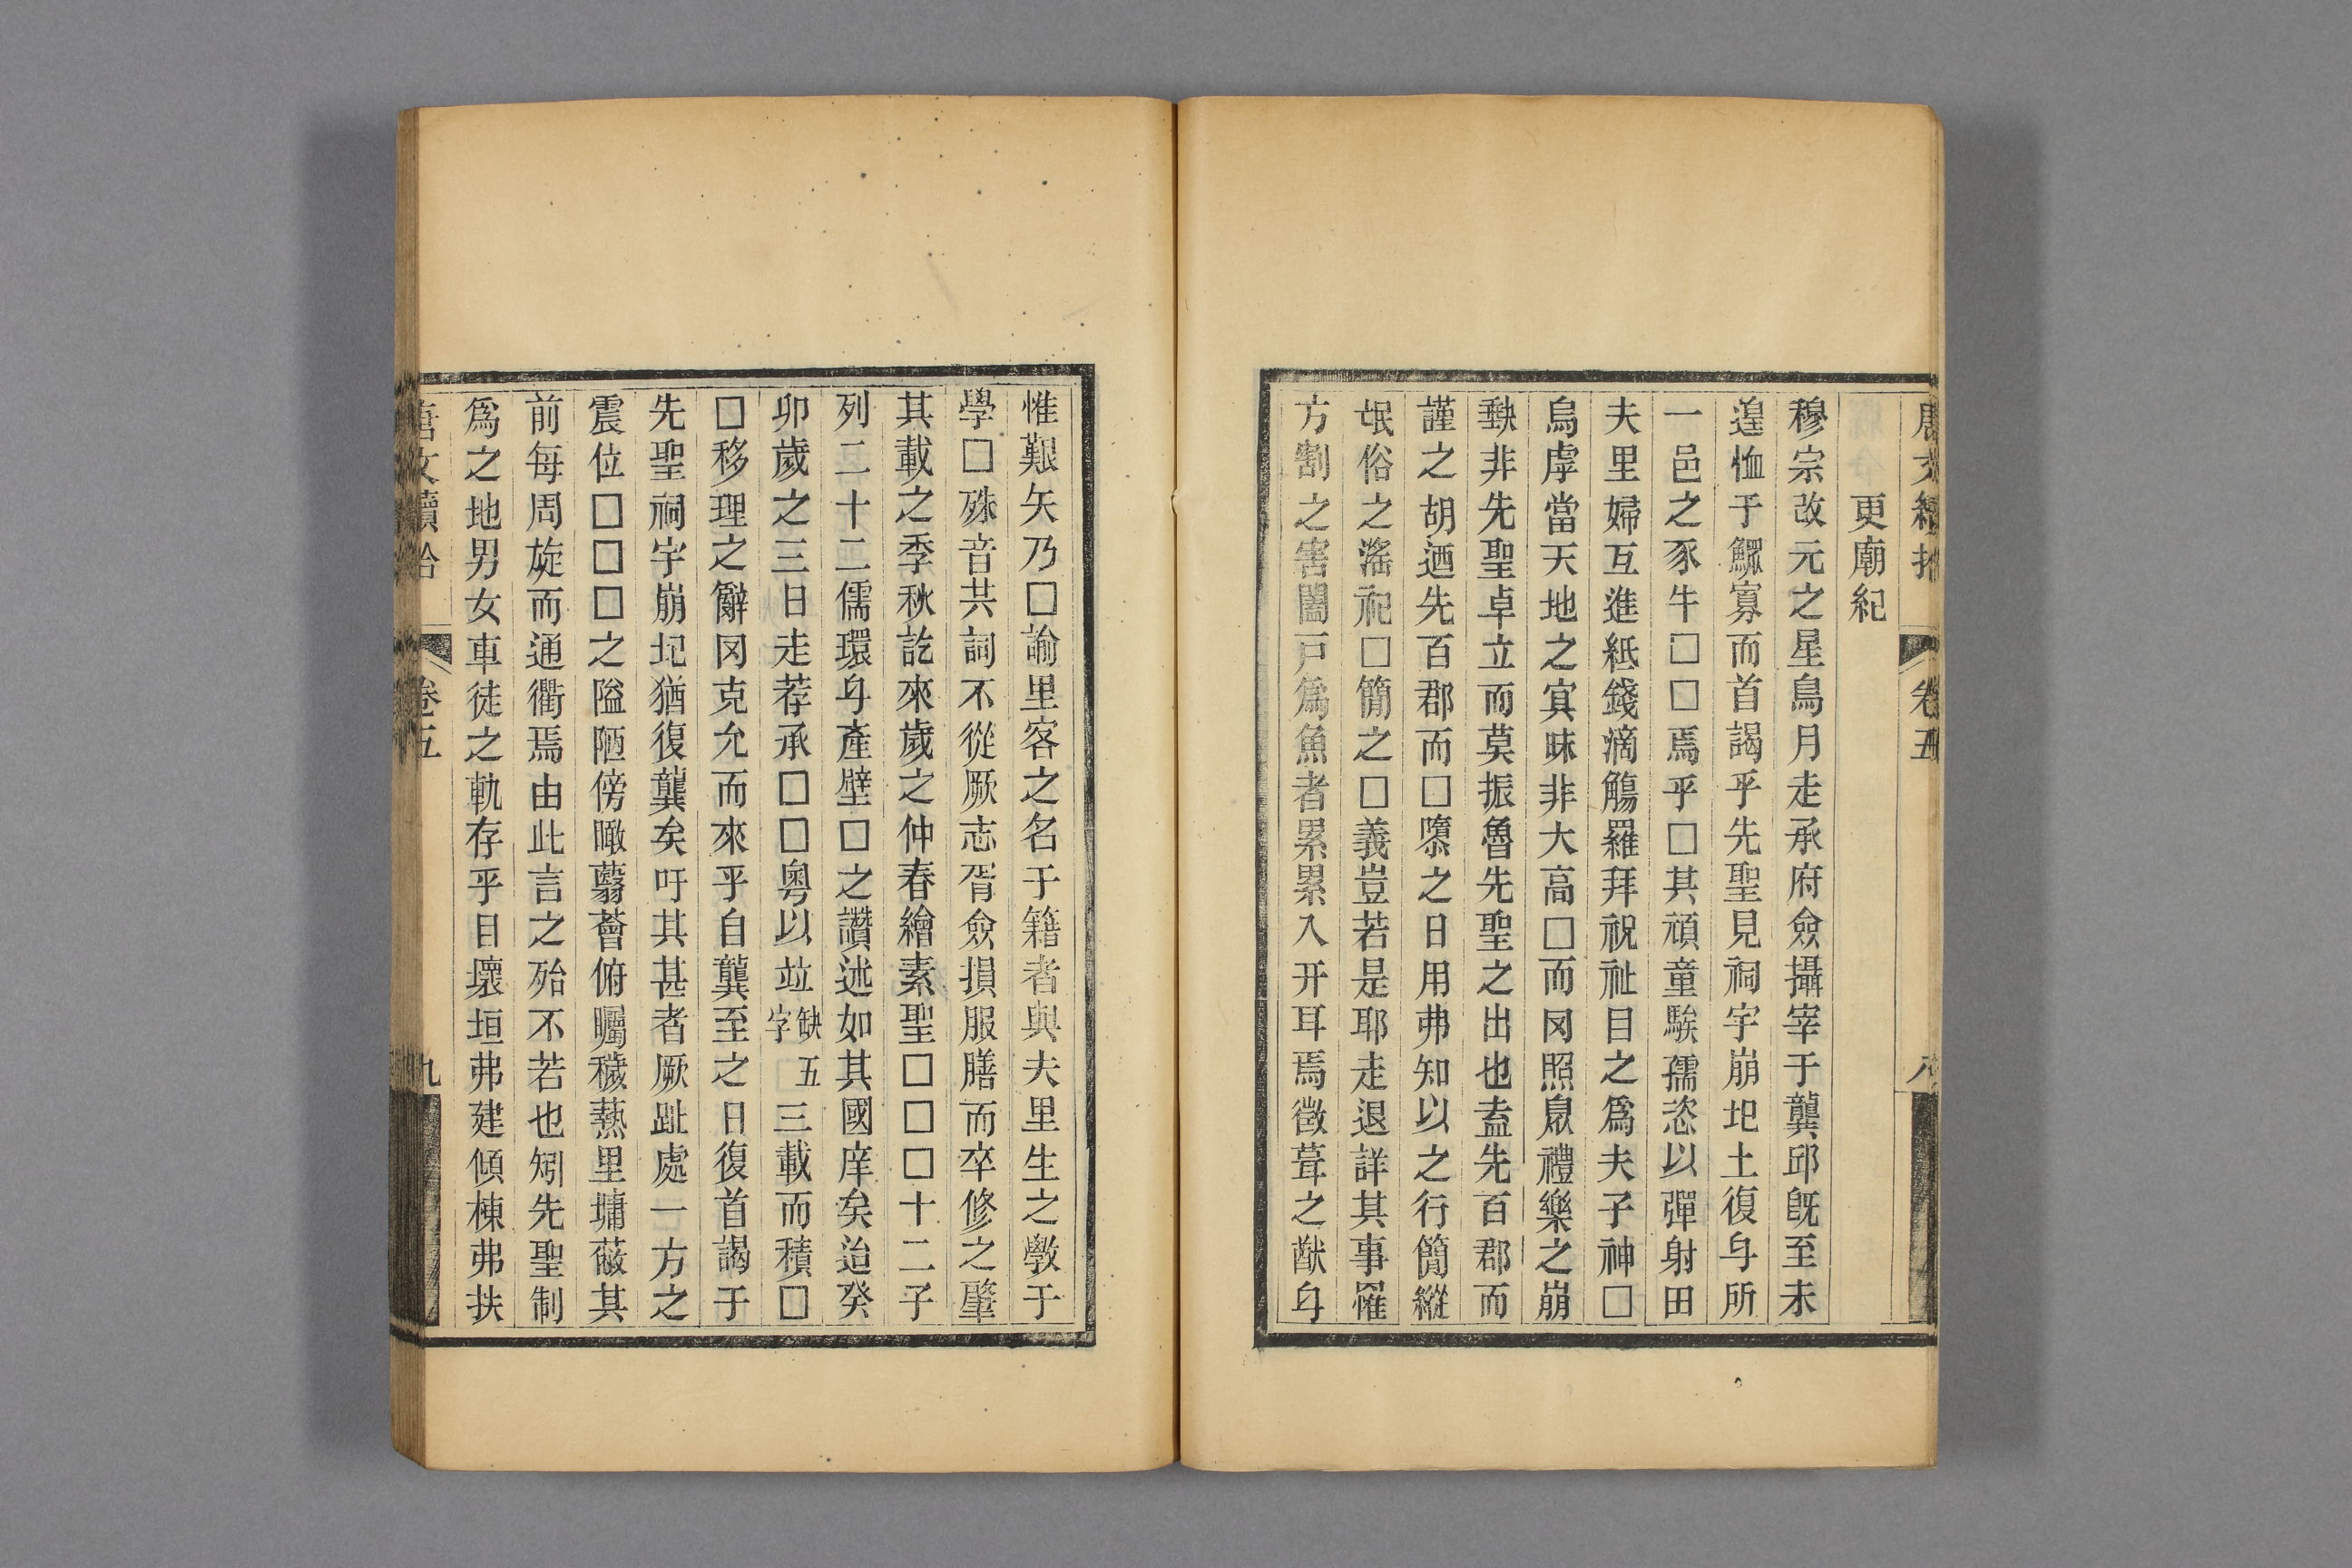 唐文續拾 卷五 八
更廟紀
穆宗改元之星鳥月走承府僉攝宰于龔邱旣至未
遑恤于鰥寡而首謁乎先聖見祠宇崩圯土復身所
一邑之豕牛□□焉乎□其頑童騃孺恣以彈射田
夫里婦互進紙錢滴觴羅拜祝祉目之爲夫子神□
烏虖當天地之寘昧非大高□而罔照臮禮樂之崩
㙯非先聖卓立而莫振魯先聖之出也盍先百郡而
謹之胡迺先百郡而□隳之日用弗知以之行簡縱
氓俗之滛祀□簡之□義豈若是耶走退詳其事罹
方割之害闔戸爲魚者累累入开耳焉徵葺之猷身
惟艱矢乃□諭里客之名于籍者與夫里生之斆于
學□殊音共詞不從厥志胥僉損服膳而卒修之肇
其載之季秋訖來歲之仲春繪素聖□□□十二子
列二十二儒環身產壁□之讚述如其國庠矣迨癸
卯歲之三日走荐承□□粵以竝缺五字三載而積□
□移理之辭罔克允而來乎自龔至之日復首謁于
先聖祠宇崩圮猶復龔矣吁其甚者厥趾處一方之
震位□□□之隘陋傍瞰蘙薈俯矚穢爇里墉蔽其
前每周旋而通衢焉由此言之殆不若也矧先聖制
爲之地男女車徒之軌存乎目壞垣弗建傾棟弗扶
唐文續拾 卷五 九